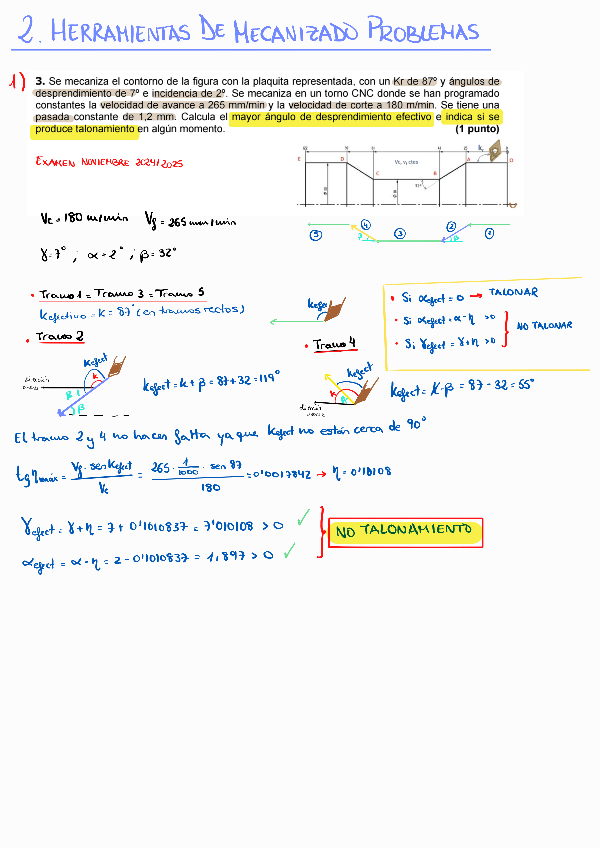 2. HERRAMIENTAS DE MECANIZADO PROBLEMAS
1) 3. Se mecaniza el contorno de la figura con la plaquita representada, con un Kr de 87º y ángulos de
desprendimiento de 7º e incidencia de 2º. Se mecaniza en un torno CNC donde se han programado
constantes la velocidad de avance a 265 mm/min y la velocidad de corte a 180 m/min. Se tiene una
pasada constante de 1,2 mm. Calcula el mayor ángulo de desprendimiento efectivo e indica si se
produce talonamiento en algún momento. (1 punto)
EXAMEN NOVIEMBRE 2024/2025
E D C B A O
Vc, Vf ctes
Vc = 180 m/min Vf = 265 mm/min
5 4 3 2 1
γ = 7° ; α = 2° ; β = 32°
• Tramo 1 = Tramo 3 = Tramo 5
Kefectivo = K = 87° (en tramos rectos)
Kefect
• Si αefect = 0 → TALONAR
• Si αefect = α - η > 0
• Si γefect = γ + η > 0
NO TALONAR
• Tramo 2
Kefect
K
β
Kefect = K + β = 87 + 32 = 119°
• Tramo 4
Kefect
K
Kefect = K - β = 87 - 32 = 55°
El tramo 2 y 4 no hacen falta ya que Kefect no están cerca de 90°
tg ηmáx = Vf · sen Kefect / Vc = 265 · 1/1000 · sen 87 / 180 = 0'0017842 → η = 0'10108
γefect = γ + η = 7 + 0'1010837 = 7'010108 > 0 ✓
αefect = α - η = 2 - 0'1010837 = 1,897 > 0 ✓
NO TALONAMIENTO